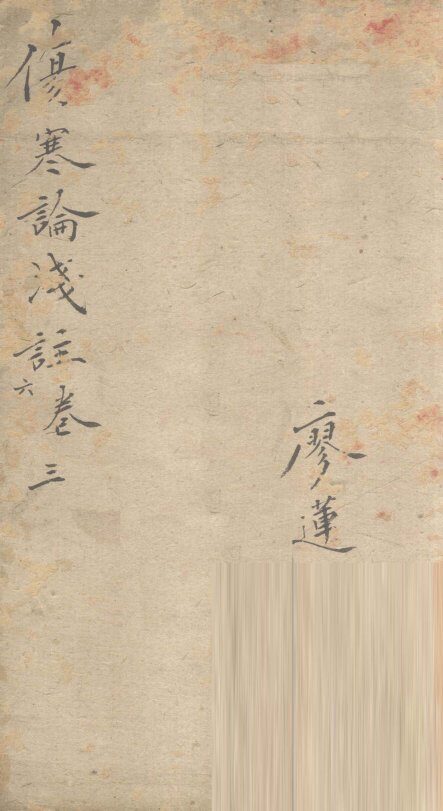 傷寒論淺註卷三
六
廖蓮